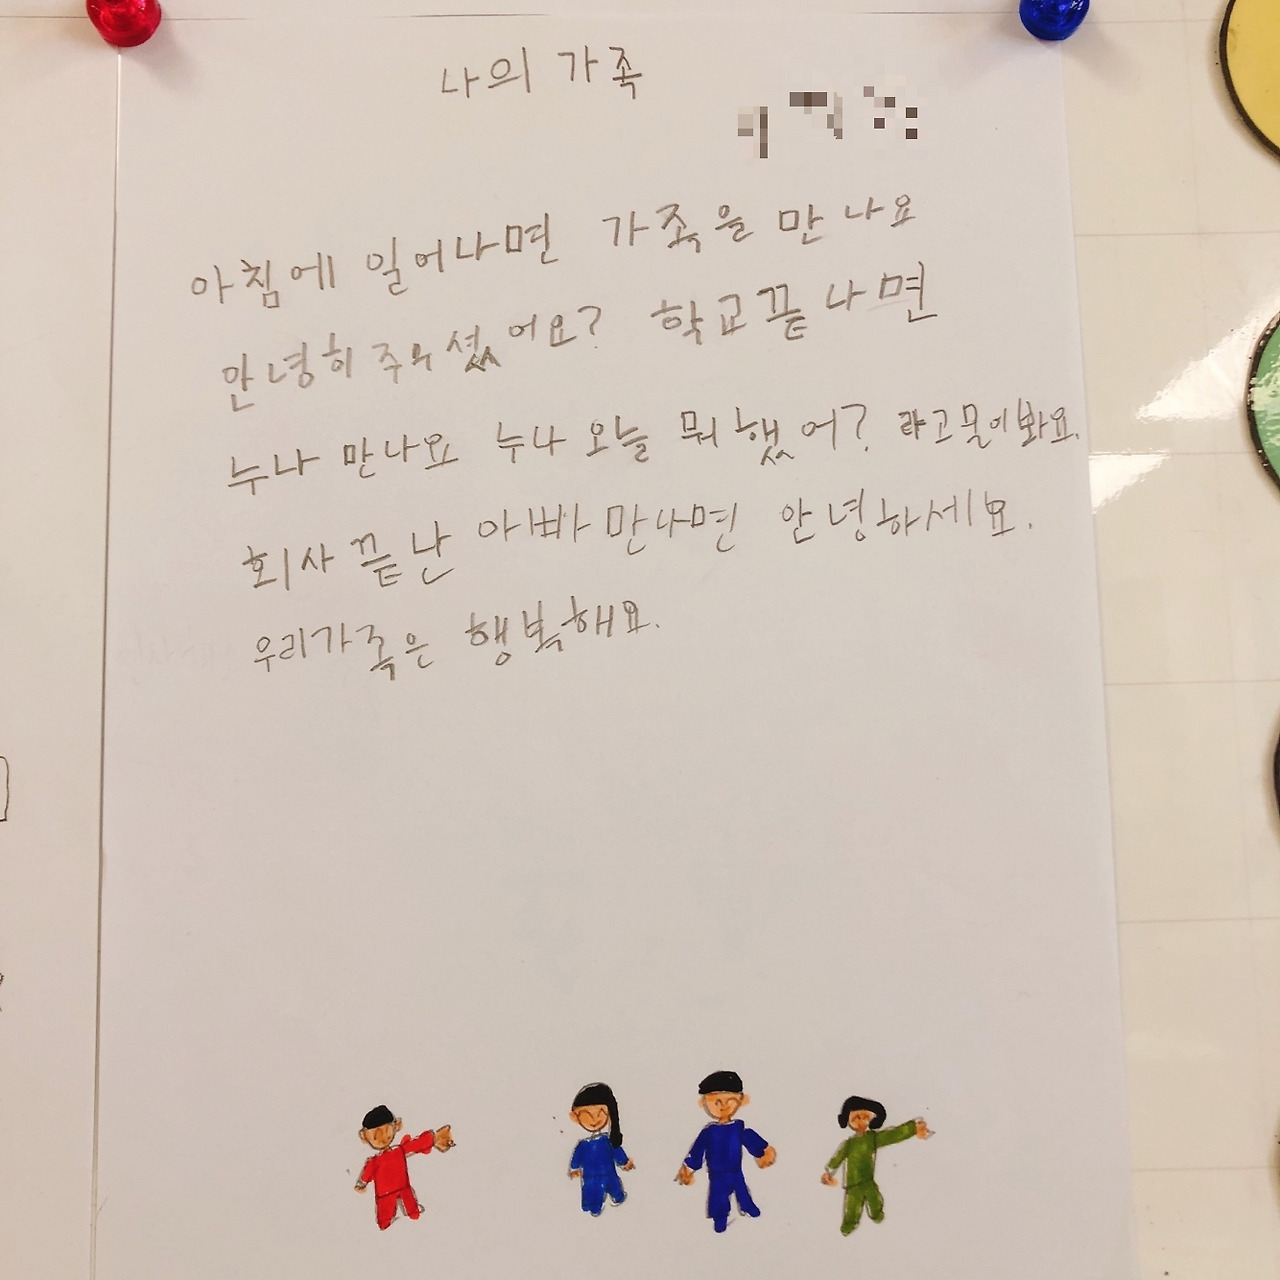 나의 가족
아침에 일어나면 가족을 만나요
안녕히 주무셨어요? 학교끝나면
누나 만나요 누나 오늘 뭐했어? 라고 물어봐요.
회사 끝난 아빠 만나면 안녕하세요.
우리가족은 행복해요.